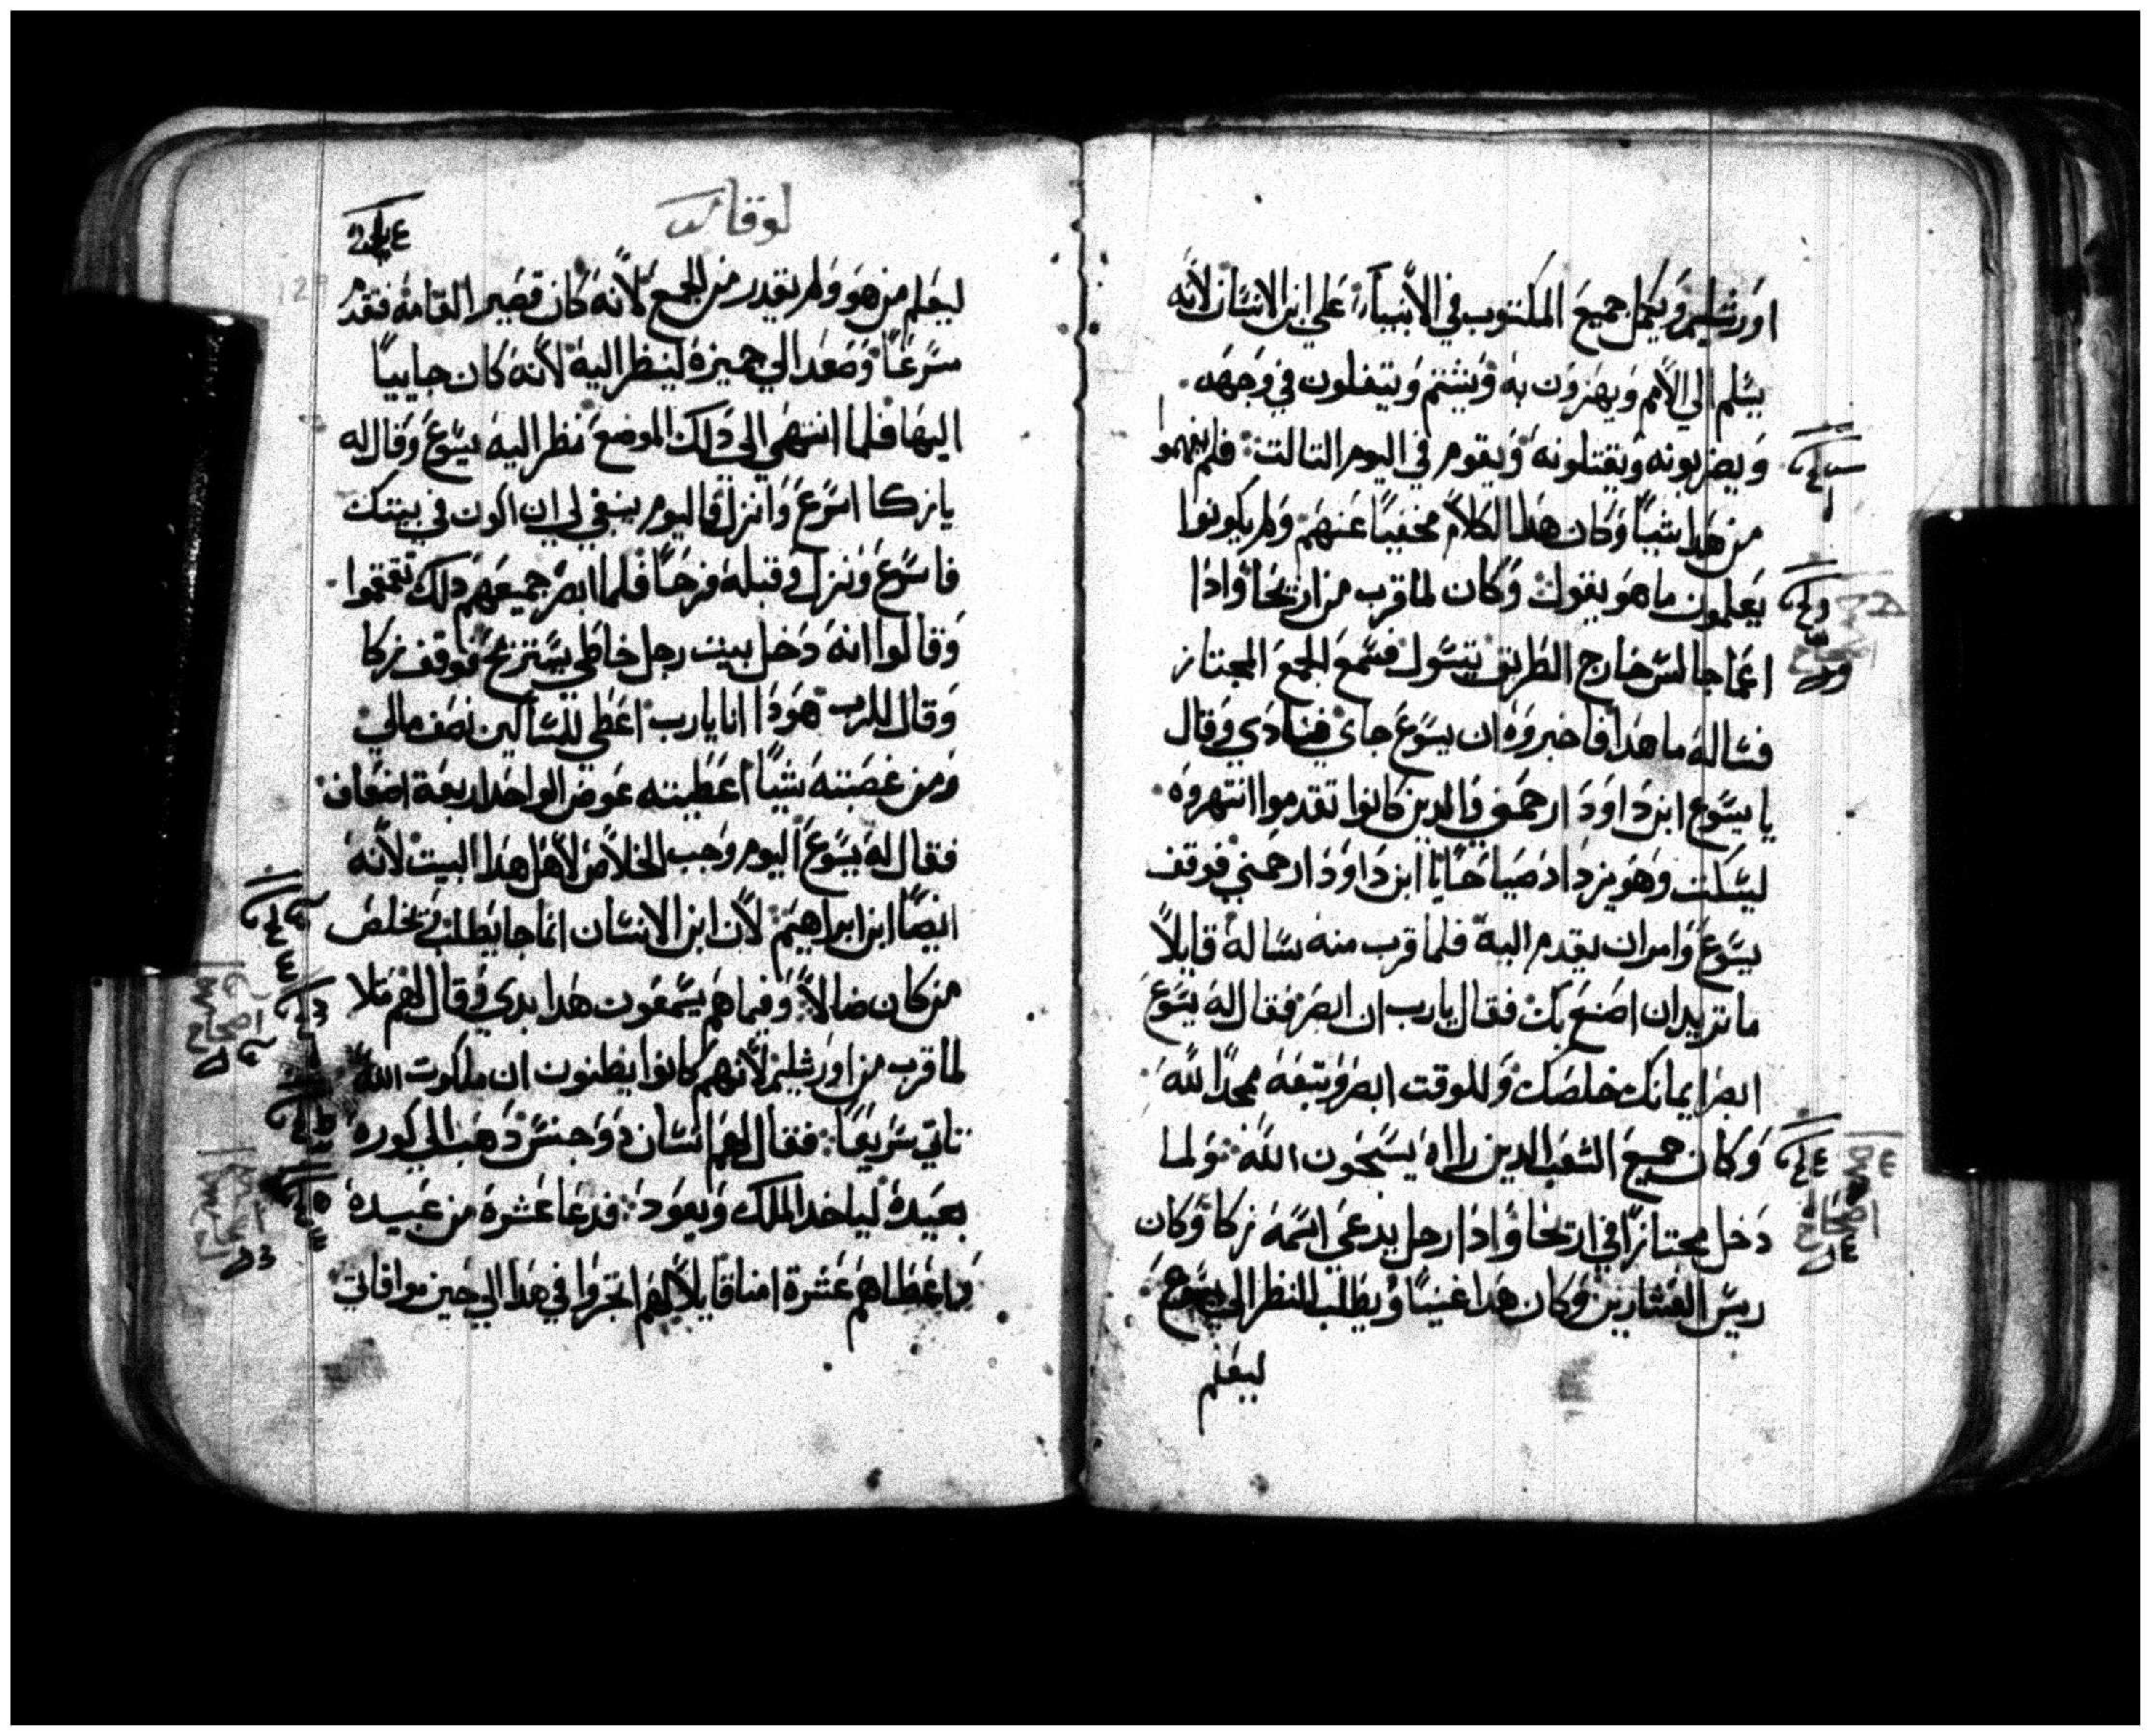 اورشليم ويكمل جميع المكتوب في الأنبياء علي ابن الانسان لأنه
يسلم الي الأمم ويهزون به ويشتم ويتفلون في وجهه
ويضربونه ويقتلونه ويقوم في اليوم التالت فلم يفهموا
من هدا شيياً وكان هدا الكلام مخفياً عنهم ولم يكونوا
يعلمون ما هو يقول وكان لما قرب من اريحا وادا
اعما جالس خارج الطريق يتسول فسمع الجمع المجتاز
فساله ما هدا فاخبروه ان يسوع جاي فنادي وقال
يا يسوع ابن داود ارحمني والدين كانوا تقدموا انتهروه
ليسكت وهو يزداد صياحاً يا ابن داود ارحمني فوقف
يسوع وامر ان يقدم اليه فلما قرب منه ساله قايلاً
ما تريد ان اصنع بك فقال يارب ان ابصر فقال له يسوع
ابصر ايمانك خلصك وللوقت ابصر وتبعه ممجداً لله
وكان جميع الشعب الدين راٰاه يسبحون الله ولما
دخل مجتازاً في اريحا وادا رجل يدعي اسمه زكا وكان
ريس العشارين وكان هدا غنياً ويطلب النظر الي يسوع
ليعلم
لوقا
ليعلم من هو ولم يقدر من الجمع لأنه كان قصير القامه فتقدم
سرعاً وصعد الي جميزة لينظر اليه لأنه كان جايياً
اليها فلما انتهي الي دلك الموضع نظر اليه يسوع وقال له
يا زكا اسرع وانزل فاليوم ينبغي لي ان اكون في بيتك
فاسرع ونزل وقبله فرحاً فلما ابصر جميعهم دلك تقمقموا
وقالوا انه دخل بيت رجل خاطي يستريح فوقف زكا
وقال للرب هودا انا يارب اعطي للمساكين نصف مالي
ومن غصبته شيياً اعطيته عوض الواحد اربعة اضعاف
فقال له يسوع اليوم وجب الخلاص لأهل هدا البيت لأنه
ايضاً ابن ابراهيم لأن ابن الانسان انما جا يطلب ويخلص
من كان ضالاً وفيما هم يسمعون هدا بدي وقال لهم مثلا
لما قرب من اورشليم لأنهم كانوا يظنون ان ملكوت الله
تاتي سريعاً فقال لهم انسان دو جنس دهب الي كورة
بعيدة لياخد الملك ويعود فدعا عشرة من عبيده
واعطاهم عشرة امنا قايلاً لهم اتجروا في هدا الي حين موافاتي